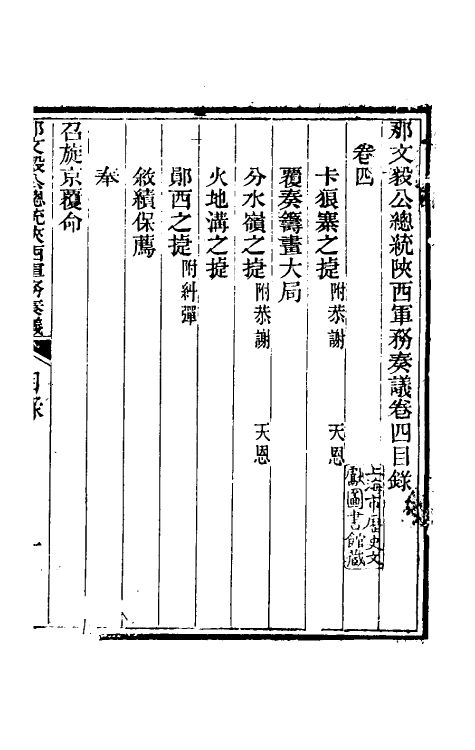 那文毅公總統陜西軍務奏議卷四目錄
卷四
卡狼寨之捷附恭謝 天恩
覆奏籌畫大局
分水嶺之捷附恭謝 天恩
火地溝之捷
鄖西之捷附糾彈
敘績保薦
奉
召旋京覆命
那文毅公總統陜西軍務奏議 目錄 一
上海市歷史文
獻圖書館藏